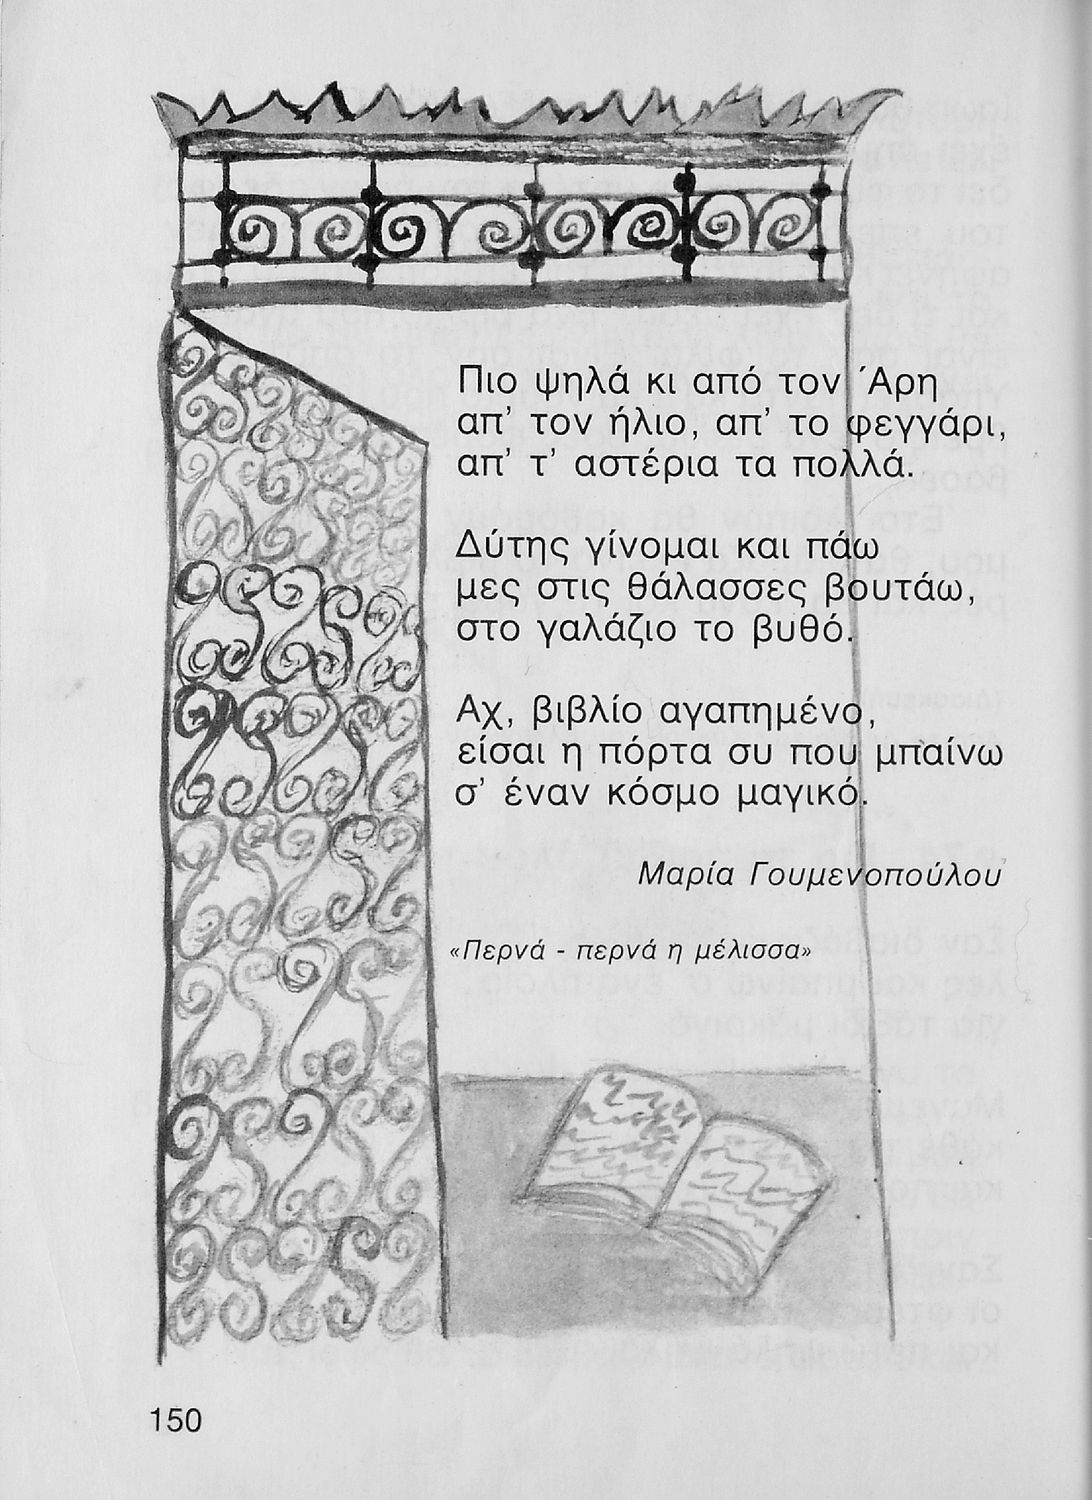 Πιο ψηλά κι από τον Άρη
απ' τον ήλιο, απ' το φεγγάρι,
απ' τ' αστέρια τα πολλά.
Δύτης γίνομαι και πάω
μες στις θάλασσες βουτάω,
στο γαλάζιο το βυθό.
Αχ, βιβλίο αγαπημένο,
είσαι η πόρτα συ που μπαίνω
σ' έναν κόσμο μαγικό.
Μαρία Γουμενοπούλου
«Περνά - περνά η μέλισσα»
150